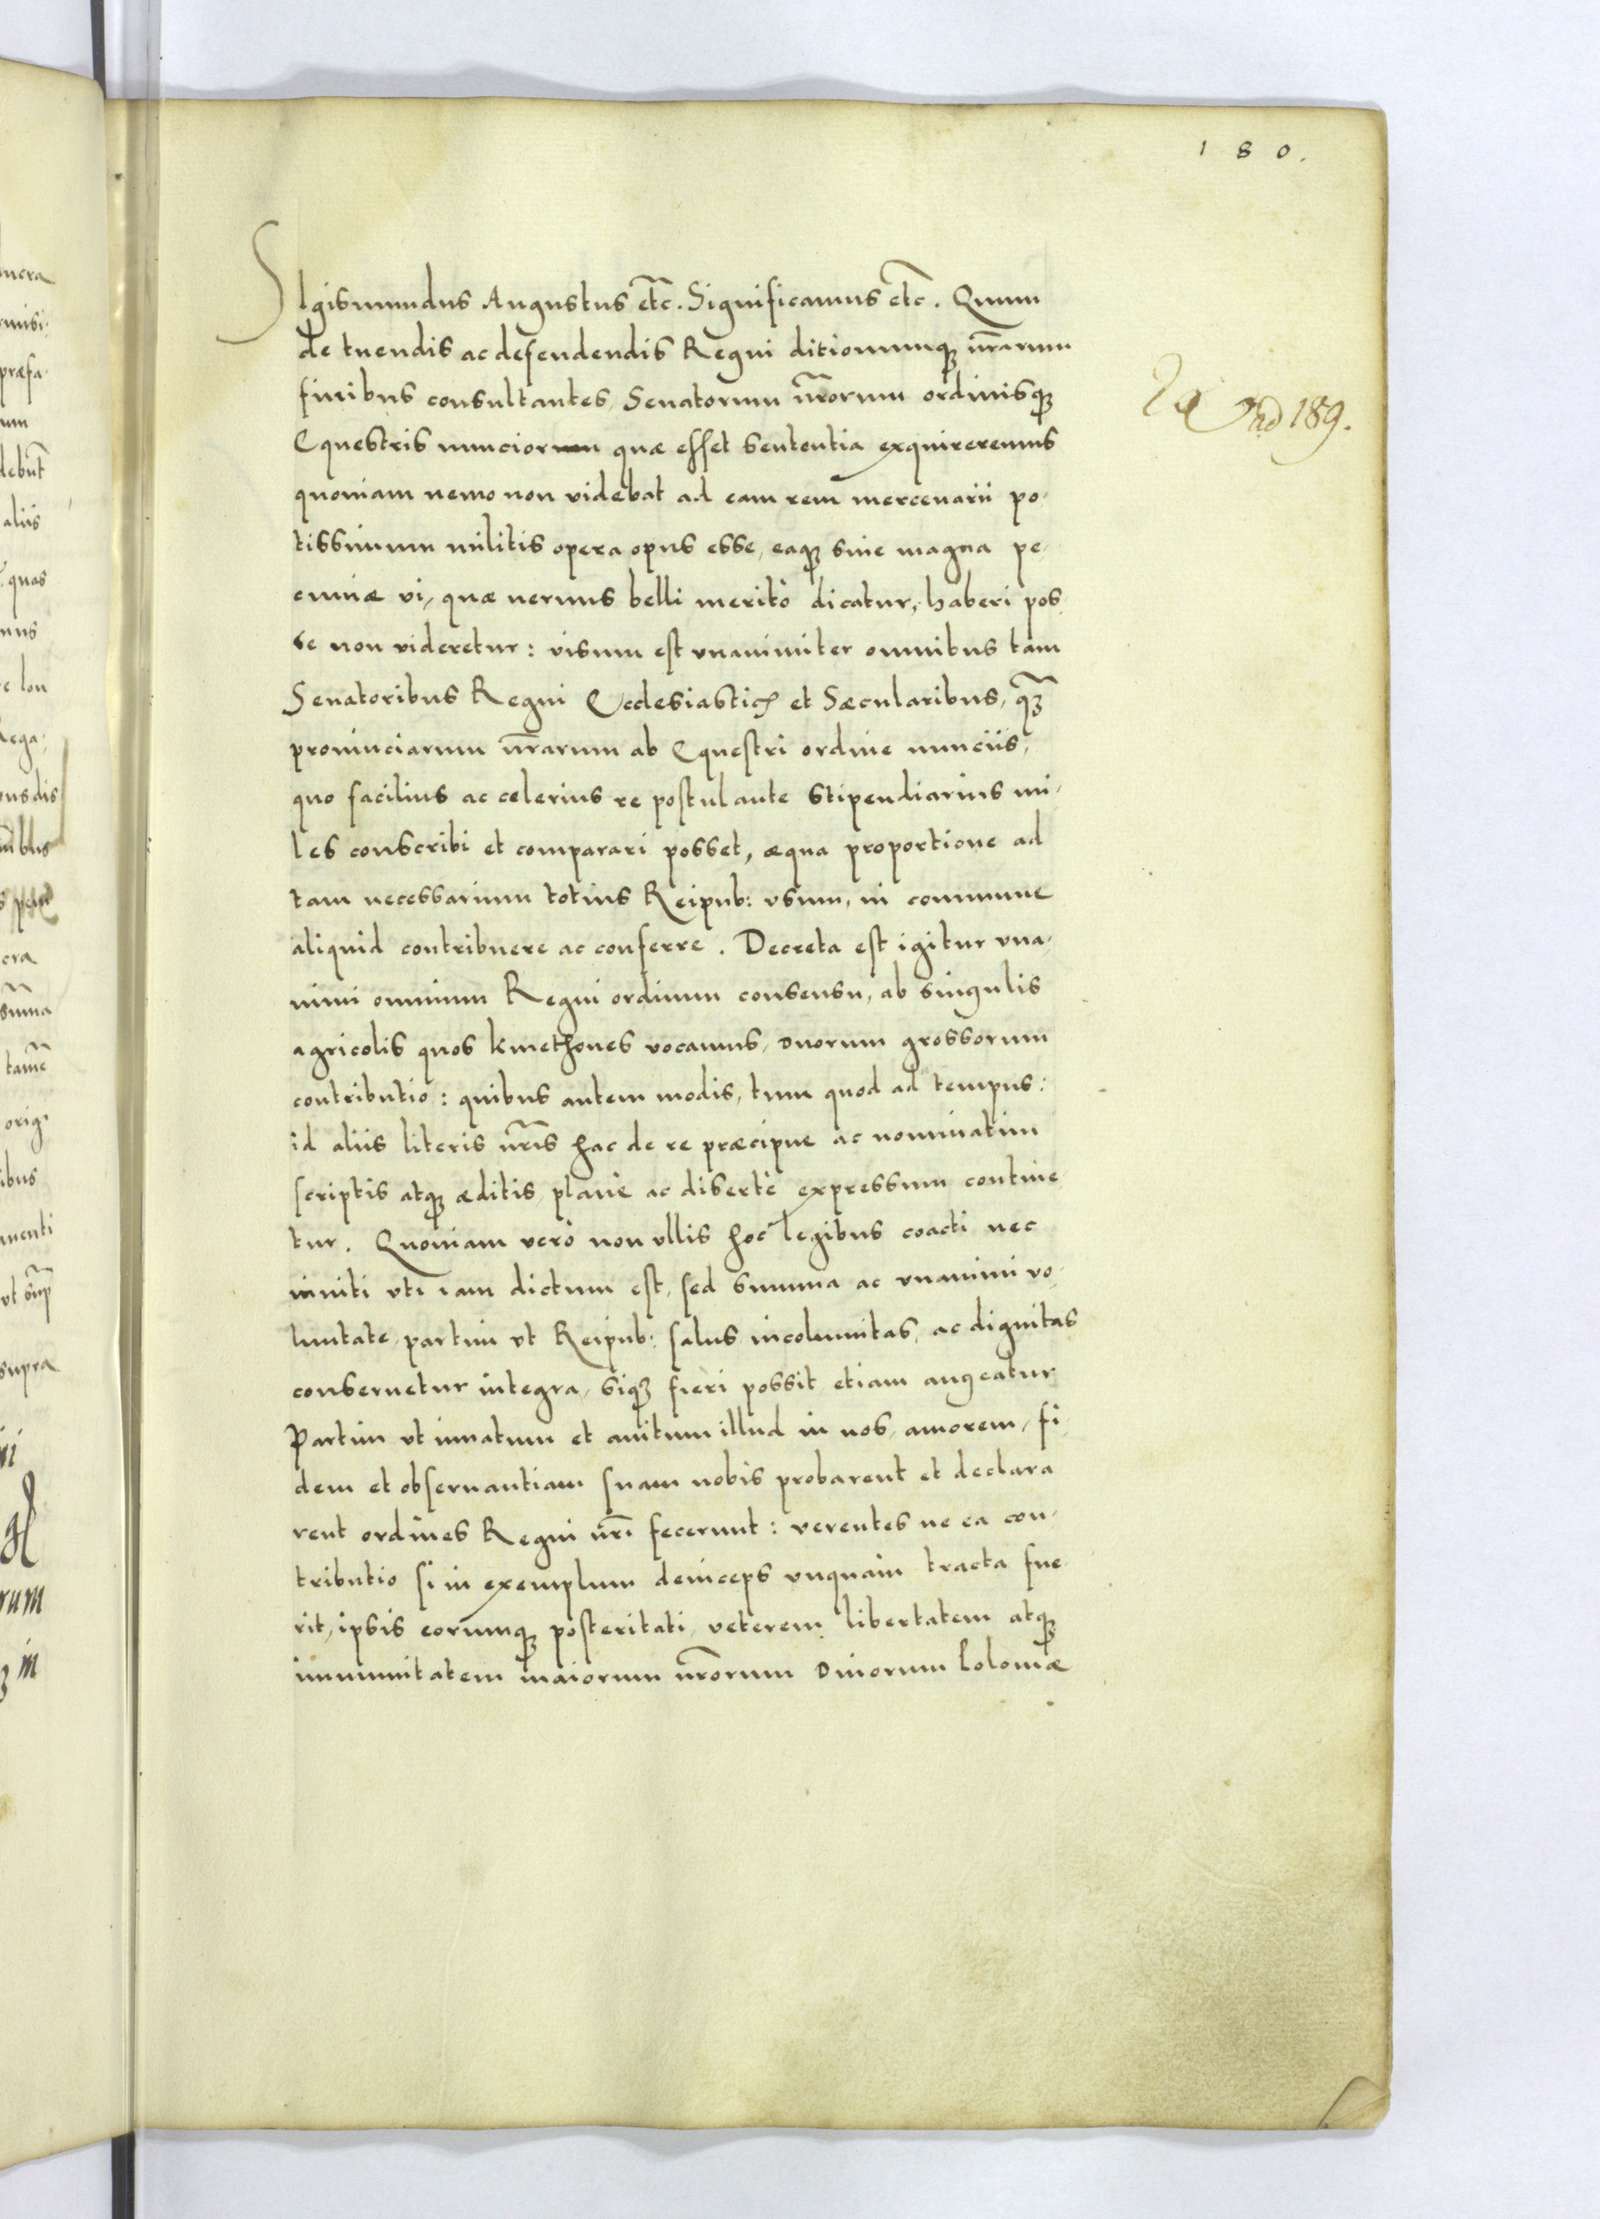 180.
SIgismundus Augustus etc. Significamus etc. Quum
de tuendis ac defendendis Regni ditionumq́ȝ nr̃arum
finibus consultantes, Senatorum nr̃orum ordinisq́ȝ
Equestris nunciorum quæ esset sententia exquireremus
quoniam nemo non videbat ad eam rem mercenarii po-
tissimum militis opera opus esse, eaq́ȝ sine magna pe-
cuniæ vi, quæ neruus belli meritò dicatur, haberi pos
se non videretur: visum est vnanimiter omnibus tam
Senatoribus Regni Ecclesiasticꝭ et Sæcularibus, q̃ȝ
prouinciarum nr̃arum ab Equestri ordine nunciis,
quo facilius ac celerius re postulante stipendiarius mi-
les conscribi et comparari posset, æqua proportione ad
tam necessarium totius Reipub: vsum, in commune
aliquid contribuere ac conferre. Decreta est igitur vna-
nimi omnium Regni ordinum consensu, ab singulis
agricolis quos kmethones vocamus, duorum grossorum
contributio: quibus autem modis, tum quod ad tempus:
id aliis literis nr̃is hac de re præcipue ac nominatim
scriptis atq́ȝ æditis planè ac disertè expressum contine-
tur. Quoniam verò non vllis hoc legibus coacti nec
inuiti vti iam dictum est, sed summa ac vnanimi vo-
luntate, partim vt Reipub: salus incolumitas, ac dignitas
conseruetur integra, siq́ȝ fieri possit etiam augeatur
Partim vt innatum et auitum illud in nos, amorem, fi-
dem et obseruantiam suam nobis probarent et declara
rent ordines Regni nr̃i fecerunt: verentes ne ea con-
tributio si in exemplum deinceps vnquam tracta fue-
rit, ipsis eorumq́ȝ posteritati, veterem libertatem atq́ȝ
immunitatem maiorum nr̃orum Diuorum Poloniæ
ad 189.